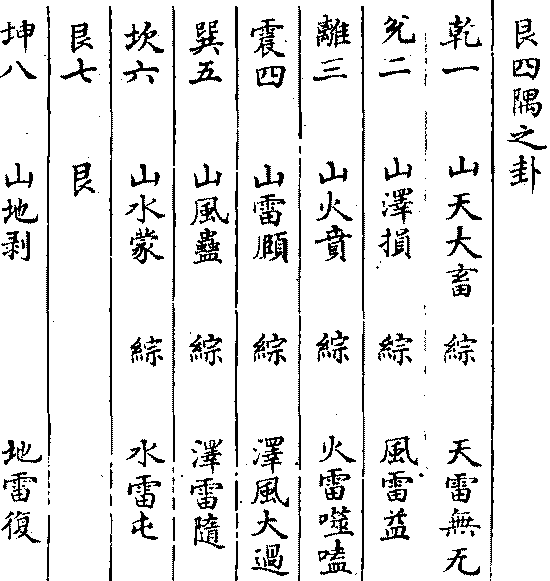 艮四隅之卦
乾一 山天大畜 綜 天雷無无
兌二 山澤損 綜 風雷益
離三 山火賁 綜 火雷噬嗑
震四 山雷頤 綜 澤風大過
巽五 山風蠱 綜 澤雷隨
坎六 山水蒙 綜 水雷屯
艮七 艮
坤八 山地剥 地雷復